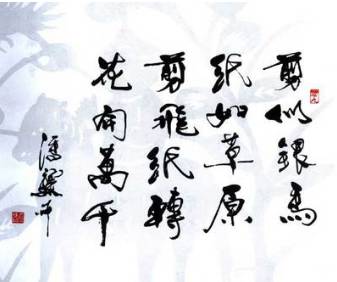 剪似銀馬
紙如草原
剪飛紙轉
花開萬千